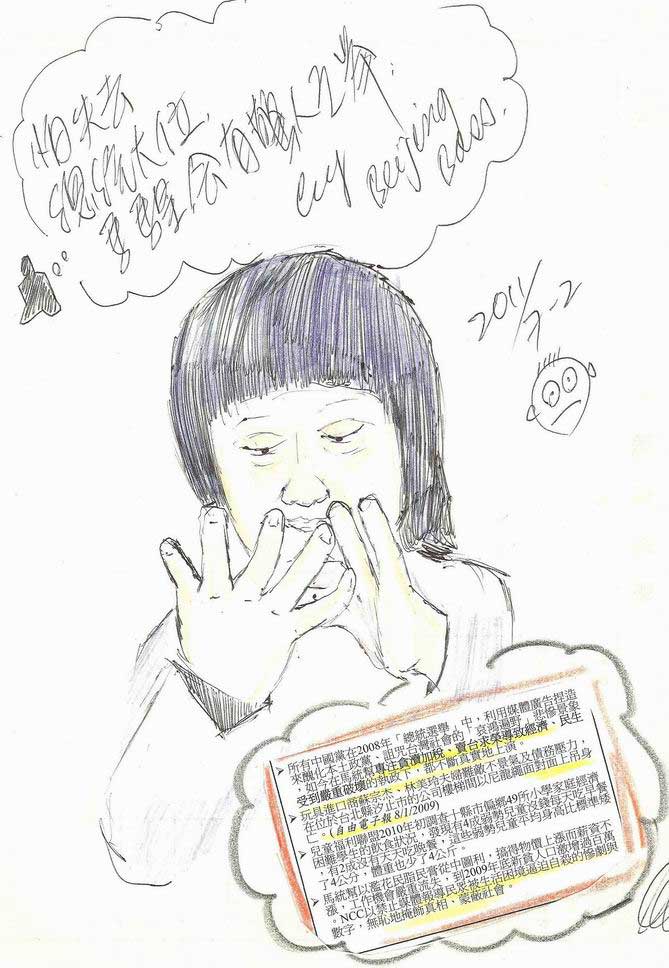 怕失去
總統大位,
馬
Beijing
Boss.
2011/7-2
所有中國黨在2008年「總統選舉」中,利用媒體廣告捏造
來醜化本土政黨、詛咒台灣社會的「哀鴻遍野」悲慘景象
,如今在馬統幫專注貪瀆加稅、賣台求榮導致經濟、民生
受到嚴重破壞的執政下,都不斷真實地上演。
玩具進口商蘇宗杰、林美玲夫婦難敵不景氣及債務壓力,
在位於台北縣汐止市的公司樓梯間以尼龍繩面對面上吊身
亡。(自由電子報 8/1/2009)
兒童福利聯盟2010年初調查十縣市偏鄉49所小學家庭經濟
困難學生的飲食狀況,發現有4成弱勢兒童沒錢每天吃早餐
,有2成沒有天天吃晚餐,這些弱勢兒童平均身高比標準矮
了4公分,體重也少了4公斤。
馬統幫以濫花民脂民膏從中圖利,搞得物價上漲而薪資不
漲,工作機會嚴重流失,到2009年底新貧人口激增過百萬
。NCC以禁止媒體報導民眾被生活困境逼迫自殺的慘劇與
數字,無恥地掩飾真相、蒙蔽社會。